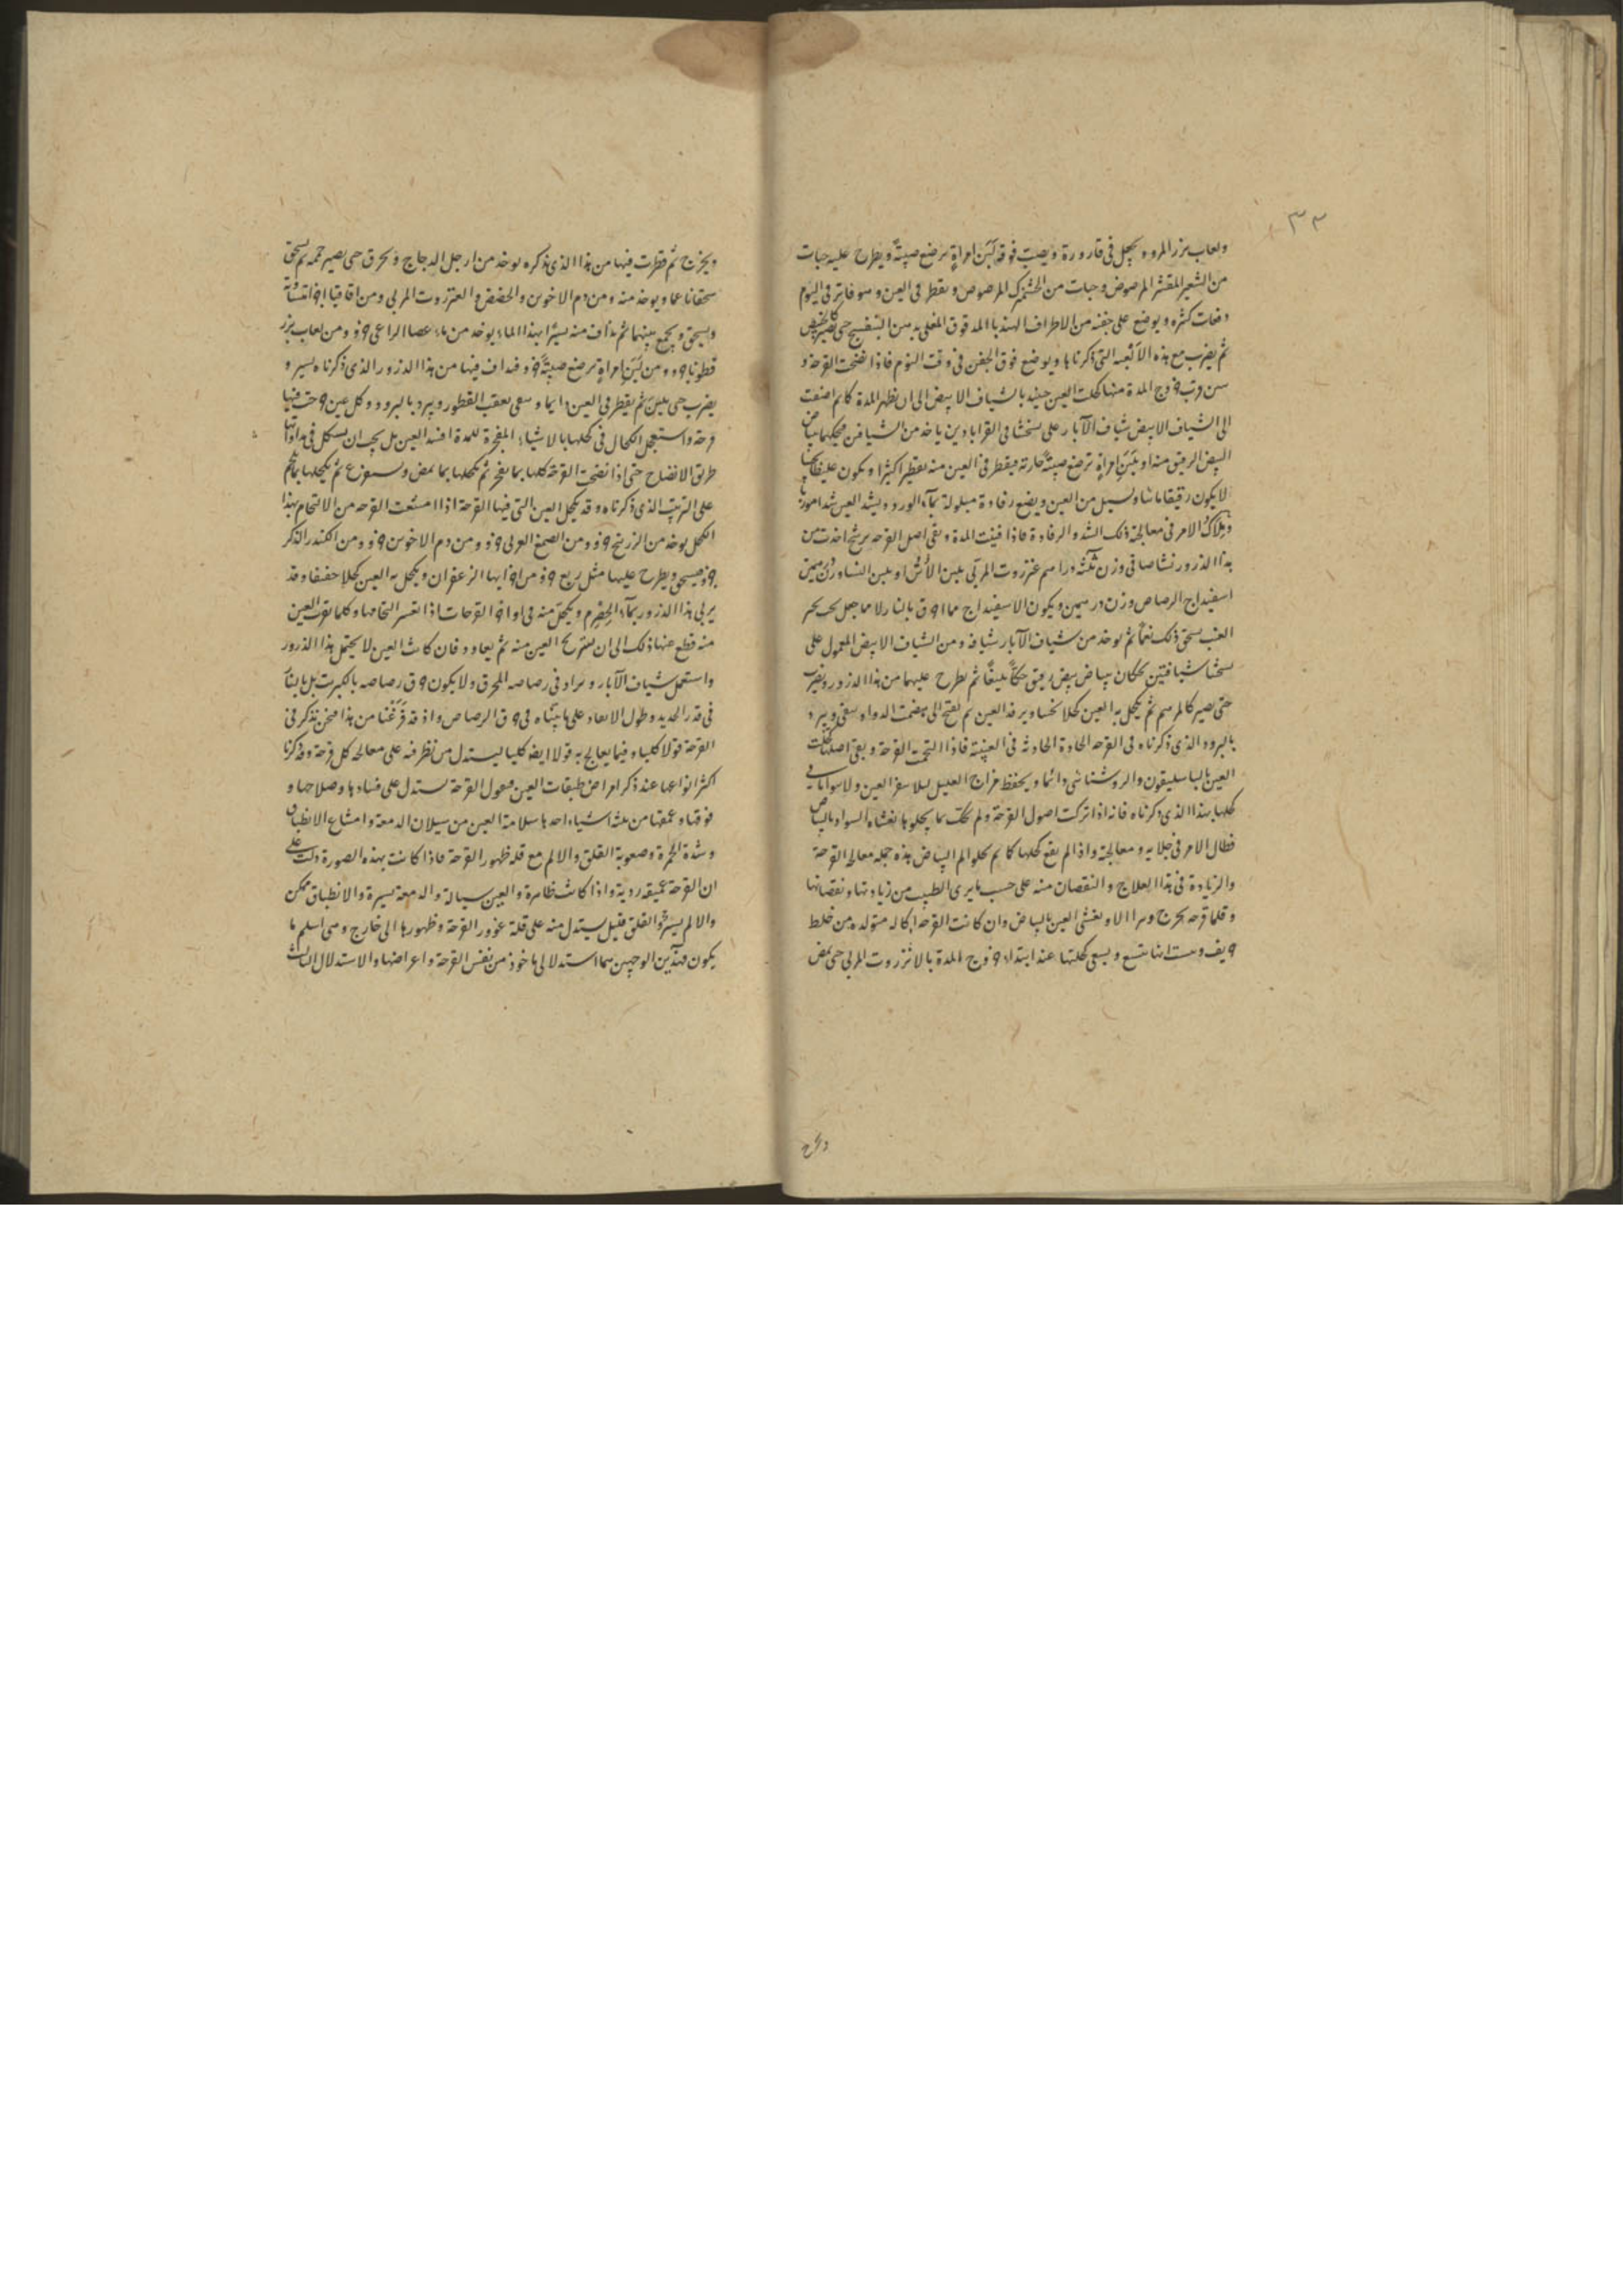 ٣٣
ولعاب بزر المرو ويجعل فى قارورة ويصب فوقه لبن امراةٍ ترضع صبيةً ويطرح عليه حبات
من الشعير المقشر المرضوض وحبات من المرضوض ويقطر فى العين وهو فاتر فى اليوم
دفعات كثيره ويوضع على جفنه من الاطراف الهندبا المدقوق المغلى بدهن البنفسج حتى يصير
ثم يضرب مع هذه الالعبه التى ذكرناها ويوضع فوق الجفن فى وقت النوم فاذا نضجت القرحة و
خروج المدة منها كحلت العين حينئذ بالشياف الابيض الى ان يظهر المدة كلها ثم اضفت
الى الشياف الابيض شياف الآبار على نسختنا فى القراباذين ياخذ من الشيافين فيحكهما ببياض
البيض الرقيق منه او بلبن امراةٍ ترضع صبيةً حارته فيقطر فى العين منه تقطيرا كثيرا ويكون
لا يكون رقيقا ما شاء ويسيل من العين ويضع رفادة مبلولة بمآء الورد ويشد العين شدا
وملاك الامر فى معالجة ذلك الشد والرفادة فاذا فنيت المدة وبقى اصل القرحه اخذت من
هذا الذرور نشا صافى وزن ثلثة دراهم عنزروت المربّى بلبن الاتن او بلبن النساء وزن درهمين
اسفيداج الرصاص وزن درهمين ويكون الاسفيداج مما احرق بالنار لا مما جعل تحت
العنب يسحق ذلك نعماً ثم يوخذ من شياف الآبار شيافه ومن الشياف الابيض المعمول على
نسختنا شيافتين يحكان ببياض بيض رقيق حكاً بليغاً ثم يطرح عليهما من هذا الذرور ويضرب
حتى يصير كالمرهم ثم يكحل به العين كحلا ويرفد العين ثم يفتح الدواء ويبرد
بالبرود الذى ذكرناه فى القرحه الحادة الحادثه فى العينية فاذا التحمت القرحة وبقى اصلها كحلت
العين بالباسليقون والروشنائى دائما ويحفظ مزاج العليل
كحلها بهذا الذى ذكرناه فانه اذا تركت اصول القرحة ولم تحك بما يجلوها بغشاه السواد بالبياض
فطال الامر فى جلايه ومعالجته واذا لم يقع كحلها كما لم يجلوا لم البياض هذه جمله معالجة القرحة
والزيادة فى هذا العلاج والنقصان منه على حسب ما يرى الطبيب من زيادتها ونقصانها
وقلما قرحه يخرج الا ويغشى العين بالبياض وان كانت القرحه اكاله متولده من خلط
حريف ورمت انها تتسع ويسعى كحلتها عند ابتداء خروج المدة بالانزروت المربى حتى يمص
ويخرج
ويخرج ثم قطرت فيها من هذا الذى نذكره يوخذ من ارجل الدجاج ويحرق حتى يصير حممه ثم يسحق
سحقا ناعما ويوخذ منه ومن دم الاخوين والحضض والعنزروت المربى ومن اقاقيا اجزا متساوية
ويسحق ويجمع بينهما ثم يداف منه يسيرا بهذا الماء يوخذ من ماء عصا الراعى جزو ومن لعاب بزر
قطونا جزو ومن لبن امراةٍ ترضع صبيةً جزو فيداف فيها من هذا الذرور الذى ذكرناه يسير و
يضرب حتى يلين ثم يقطر فى العين دايما وسقى بعقب القطور ويبرد بالبرود وكل عين خرجت فيها
قرحة واستعجل الكحال فى كحلها بالاشياء المفجرة للمدة افسد العين بل يجب ان يسلك فى مداواتها
طريق الانضاج حتى اذا نضجت القرحة كحلها بما يفجر ثم يكحلها بما يمص ثم يكحلها بما يلحم
على الترتيب الذى ذكرناه وقد يكحل العين التى فيها القرحة اذا امتنعت القرحه من الالتحام بهذا
الكحل يوخذ من الزرنيخ جزو ومن الصمغ العربى جزو ومن دم الاخوين جزو ومن الكندر الذكر
جزو فيسحق ويطرح عليها مثل ربع جزو من اجزايها الزعفران ويكحل به العين كحلا خفيفا وقد
يربى هذا الذرور بمآء الحصرم ويكحل منه فى اواخر القرحات اذا تعسر التحامها وكلما نفرت العين
منه قطع عنها ذلك الى ان تستريح العين منه ثم يعاود فان كانت العين لا يحتمل هذا الذرور
واستعمل شياف الآبار ويزاد فى رصاصه المحرق ولا يكون حرق رصاصه بالكبريت بل بالنار
فى قدر الحديد وطول الابعاد على ما بيناه فى حرق الرصاص واذ قد فرغنا من هذا فنحن نذكر فى
القرحة قولا كليا وفيما يعالج به قولا ايضا كليا ليستدل من نظر فيه على معالجه كل قرحة وقد ذكرنا
اكثر انواعها عند ذكر امراض طبقات العين فنقول القرحة يستدل على فسادها وصلاحها و
غورها وعمقها من ثلثه اشياء احدها سلامة العين من سيلان الدمعة وامتناع الانطباق
وشدة الحمرة وصعوبة القلق والالم مع قله ظهور القرحة فاذا كانت بهذه الصورة دلت على
ان القرحة عميقه ردية واذا كانت ظاهرة والعين سيالة والدمعة يسيرة والانطباق ممكن
والالم يسيرٌ والقلق قليل يستدل منه على قلة غوور القرحة وظهورها الى خارج وهى اسلم ما
يكون فهذين الوجهين هما استدلالى ماخوذ من نفس القرحة واعراضها والاستدلال الثالث